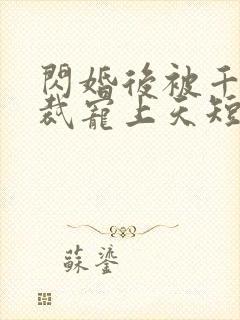 閃婚後被千
裁寵上天短
蘇鎏